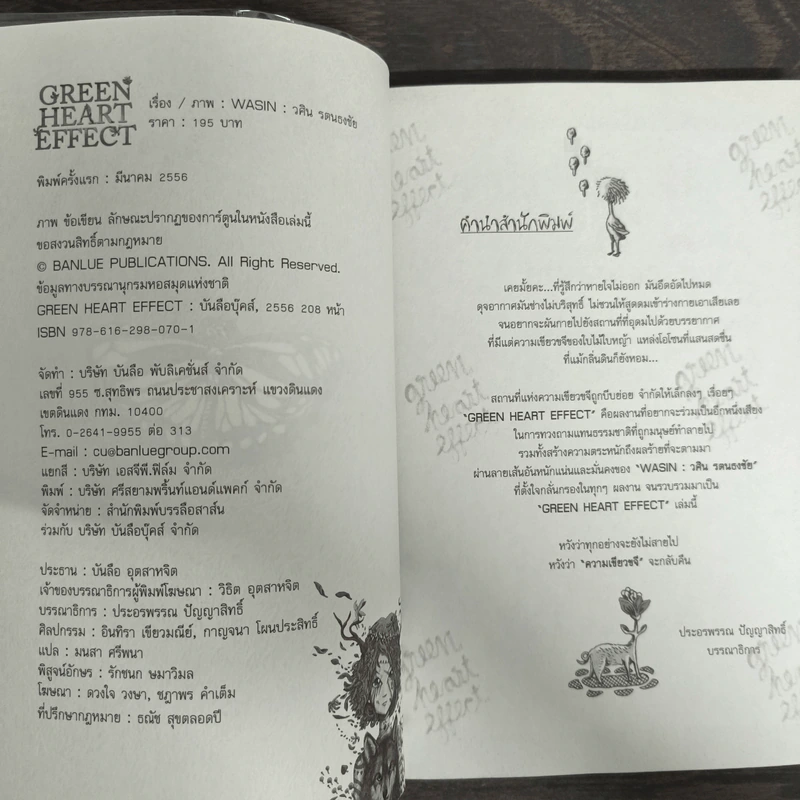 GREEN
HEART
EFFECT
เรื่อง / ภาพ : WASIN : วศิน รตนธงชัย
ราคา : 195 บาท
พิมพ์ครั้งแรก : มีนาคม 2556
ภาพ ข้อเขียน ลักษณะปรากฏของการ์ตูนในหนังสือเล่มนี้
ขอสงวนสิทธิ์ตามกฎหมาย
© BANLUE PUBLICATIONS. All Right Reserved.
ข้อมูลทางบรรณานุกรมหอสมุดแห่งชาติ
GREEN HEART EFFECT : บันลือบุ๊คส์, 2556 208 หน้า
ISBN 978-616-298-070-1
จัดทำ : บริษัท บันลือ พับลิเคชั่นส์ จำกัด
เลขที่ 955 ซ.สุทธิพร ถนนประชาสงเคราะห์ แขวงดินแดง
เขตดินแดง กทม. 10400
โทร. 0-2641-9955 ต่อ 313
E-mail : cu@banluegroup.com
แยกสี : บริษัท เอสจีพี.ฟิล์ม จำกัด
พิมพ์ : บริษัท ศรีสยามพริ้นท์แอนด์แพคก์ จำกัด
จัดจำหน่าย : สำนักพิมพ์บรรลือสาส์น
ร่วมกับ บริษัท บันลือบุ๊คส์ จำกัด
ประธาน : บันลือ อุตสาหจิต
เจ้าของบรรณาธิการผู้พิมพ์โฆษณา : วิธิต อุตสาหจิต
บรรณาธิการ : ประอรพรรณ ปัญญาสิทธิ์
ศิลปกรรม : อินทิรา เขียวมณีย์, กาญจนา โผนประสิทธิ์
แปล : มนสา ศรีพนา
พิสูจน์อักษร : รักชนก ษมาวิมล
โฆษณา : ดวงใจ วงษา, ชฎาพร คำเต็ม
ที่ปรึกษากฎหมาย : ธณัช สุขตลอดปี
คำนำสำนักพิมพ์
เคยมั้ยคะ...ที่รู้สึกว่าหายใจไม่ออก มันอึดอัดไปหมด
ดุจอากาศมันช่างไม่บริสุทธิ์ ไม่ชวนให้สูดดมเข้าร่างกายเอาเสียเลย
จนอยากจะผันกายไปยังสถานที่ที่อุดมไปด้วยบรรยากาศ
ที่มีแต่ความเขียวขจีของใบไม้ใบหญ้า แหล่งโอโซนที่แสนสดชื่น
ที่แม้กลิ่นดินก็ยังหอม...
สถานที่แห่งความเขียวขจีถูกบีบย่อย จำกัดให้เล็กลงๆ เรื่อยๆ
"GREEN HEART EFFECT" คือผลงานที่อยากจะร่วมเป็นอีกหนึ่งเสียง
ในการทวงถามแทนธรรมชาติที่ถูกมนุษย์ทำลายไป
รวมทั้งสร้างความตระหนักถึงผลร้ายที่จะตามมา
ผ่านลายเส้นอันหนักแน่นและมั่นคงของ "WASIN : วศิน รตนธงชัย"
ที่ตั้งใจกลั่นกรองในทุกๆ ผลงาน จนรวบรวมมาเป็น
"GREEN HEART EFFECT" เล่มนี้
หวังว่าทุกอย่างจะยังไม่สายไป
หวังว่า "ความเขียวขจี" จะกลับคืน
ประอรพรรณ ปัญญาสิทธิ์
บรรณาธิการ
green
heart
effect
green
heart
effect
green
heart
effect